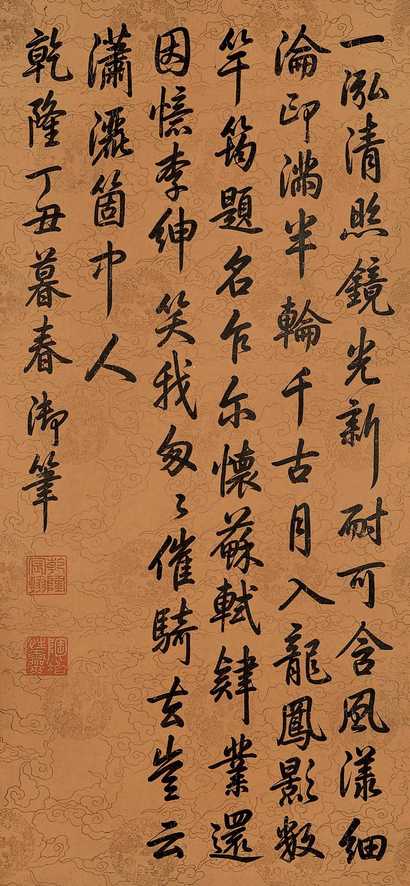 一泓清照鏡光新耐可含風漾細
淪印滿半輪千古月入龍鳳影數
竿筠題名乍尔懷蘇軾肄業還
因憶李紳笑我匆〻催騎去豈云
瀟灑箇中人
乾隆丁丑暮春御筆
乾隆宸翰